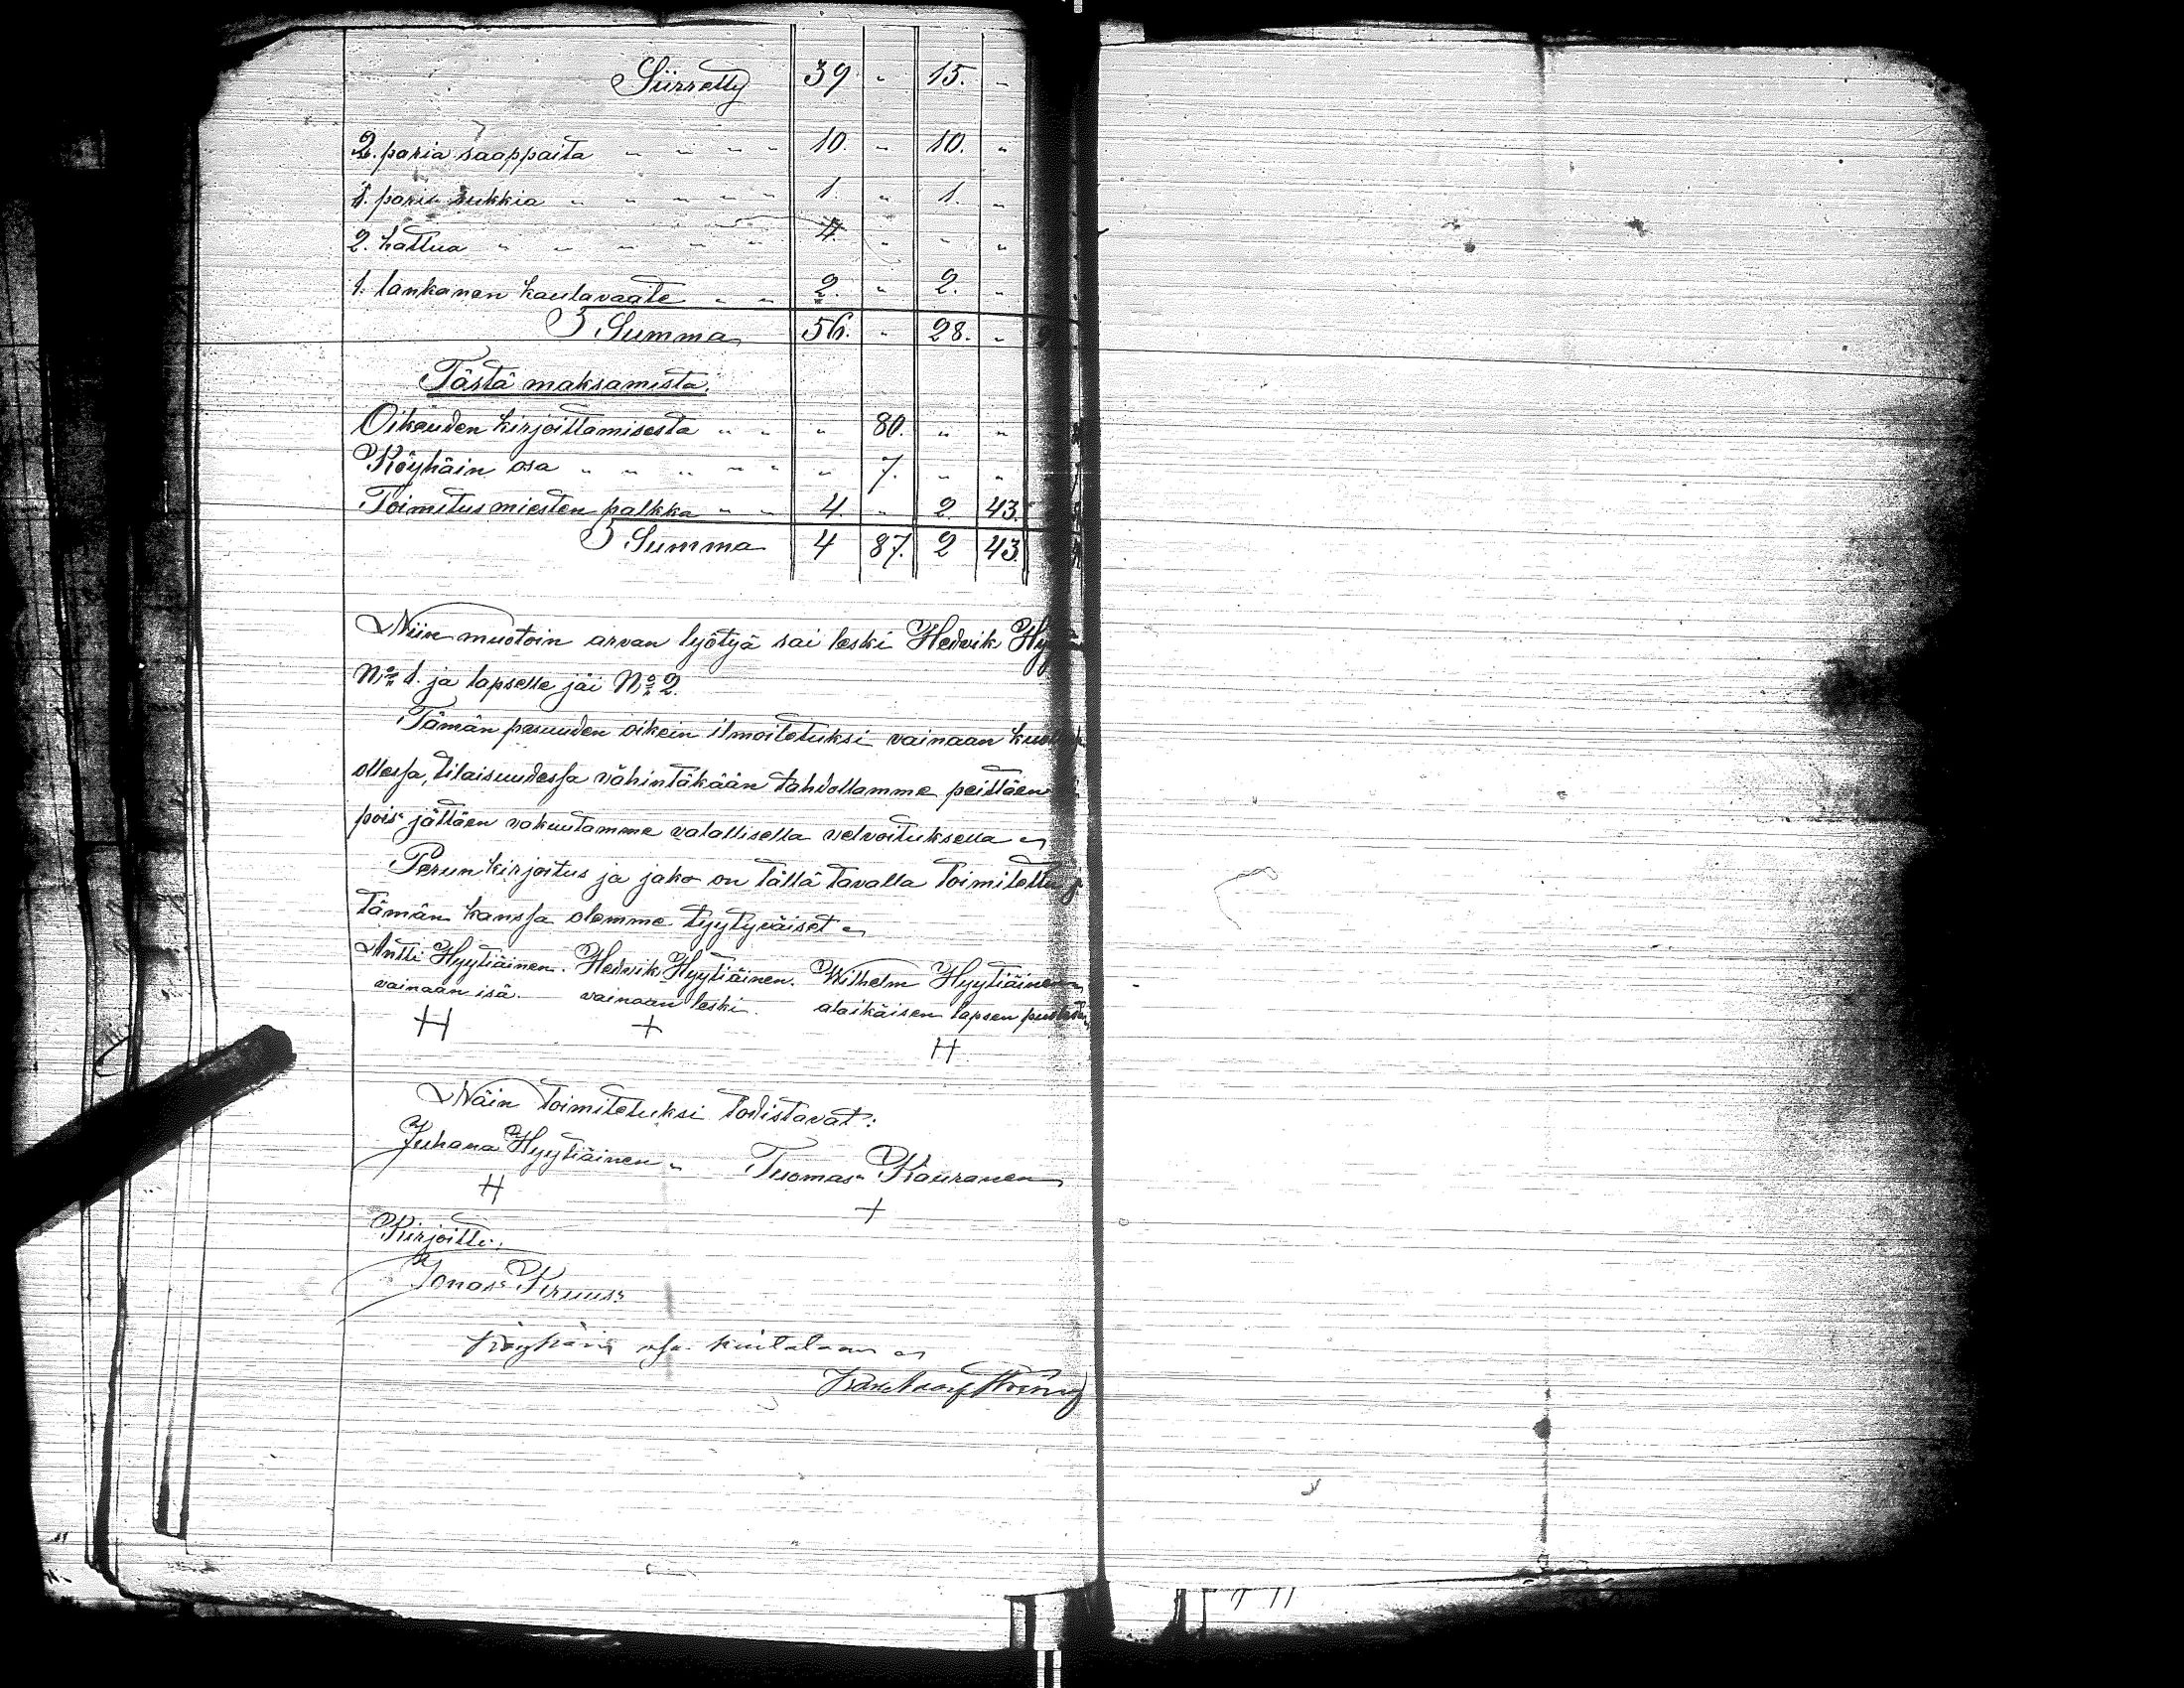 Siirretty 39 " 15. "
2. paria saappaita " " " " 10. " 10. "
1. pari sukkia " " " " " 1. " 1. "
2. hattua " " " " " 4. " " "
1. lankanen kaulavaate " " 2. " 2. "
Summa 56. " 28. "
Tästä maksamista.
Oikeuden kirjoittamisesta " " " 80. " "
Köyhäin osa " " " " " " 7. " "
Toimitusmiesten palkka " " 4. " 2. 43.
Summa 4 87. 2 43.
Niin muotoin arvan lyötyä sai leski Hedvik
No 1. ja lapselle jäi No 2.
Tämän pesuuden oikein ilmoitetuksi vainaan
ollessa, tilaisuudessa vähintäkään tahdollamme peittäen
pois jättäen vakuutamme valallisella velvoituksella
Perunkirjoitus ja jako on tällä tavalla toimitettu
tämän kanssa olemme tyytyväiset
Antti Hyytiäinen. Hedvik Hyytiäinen. Wilhelm Hyytiäinen
vainaan isä. vainaan leski. alaikäisen lapsen
Näin toimitetuksi todistavat:
Juhana Hyytiäinen " Tuomas Kauranen
Kirjoitti:
Jonas Kruus
Köyhäin osa kuitataan